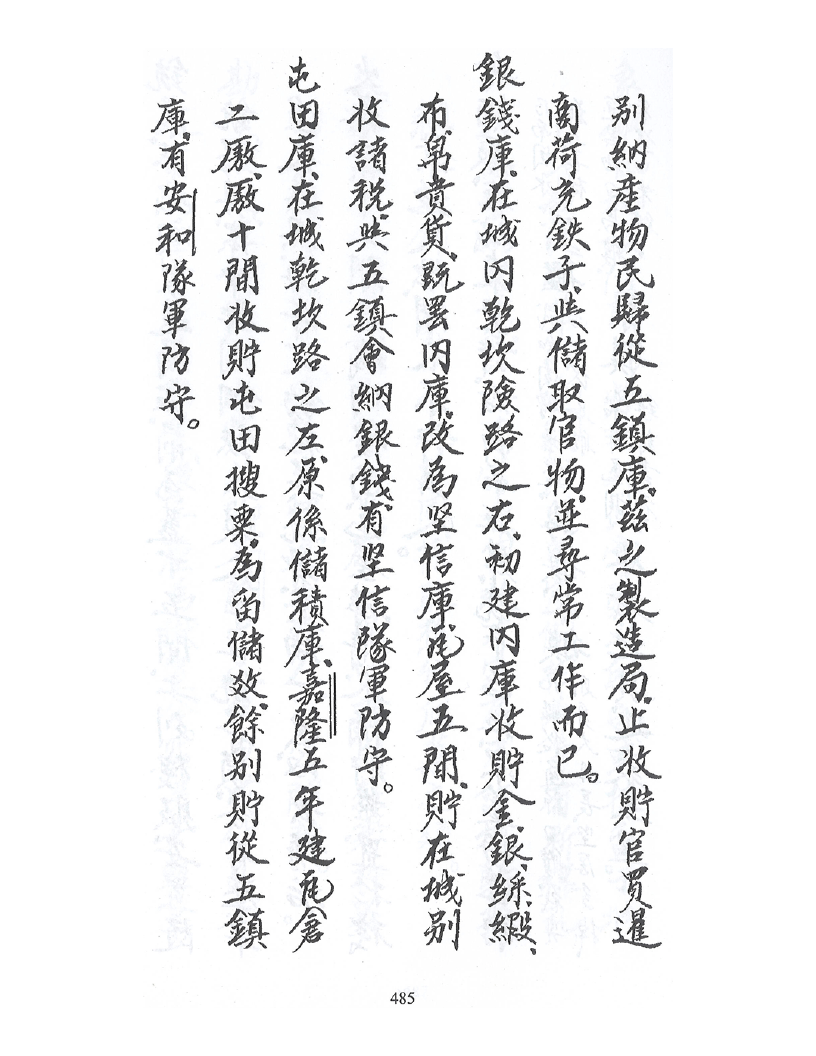 別納產物民歸從五鎮庫。茲之製造局、止收貯官買暹
商荷充鉄子、與儲取官物、並尋常工作而已。
銀錢庫、在城内乾坎險路之右、初建内庫收貯金、銀、綵、緞、
布、帛貴貨、既罢内庫、改為坚信庫、瓦屋五間、貯在城别
收諸税、與五鎮會納銀錢、有坚信隊軍防守。
屯田庫、在城乾坎路之左、原係儲積庫、嘉隆五年建瓦倉
二厫、厫十間收貯屯田搜粟、為留儲效、餘别貯從五鎮
庫、有安和隊軍防守。
485